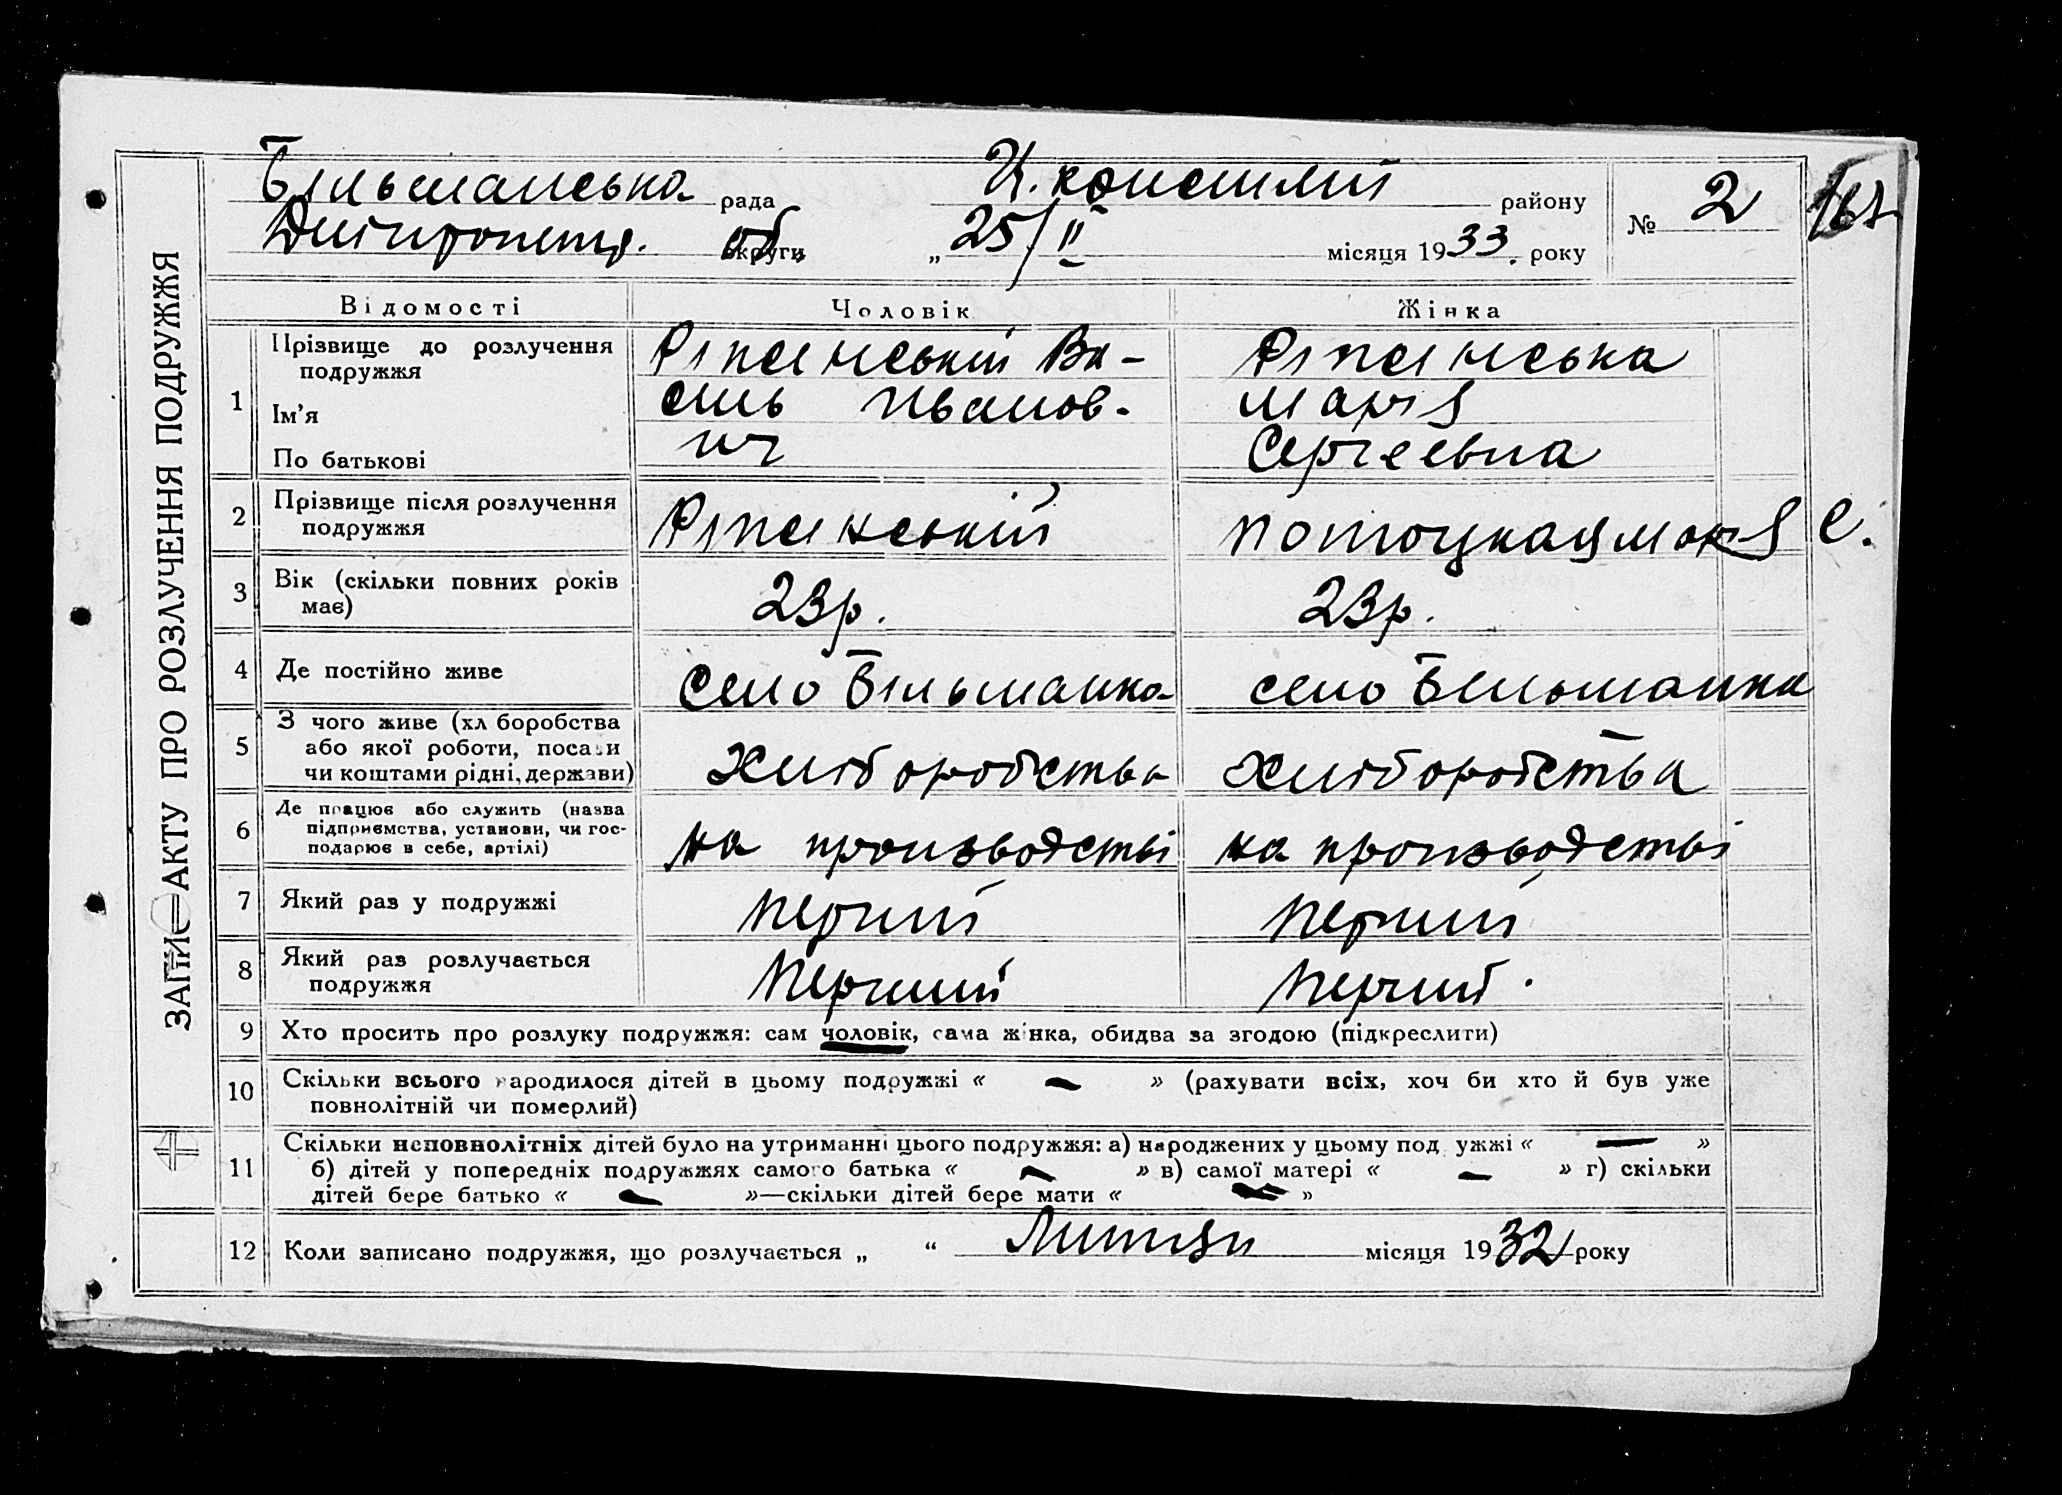 Більманська рада Ц. констплій району № 2 167
Дніпропетр. об. округи „ 25/II місяця 1933. року
ЗАПИС АКТУ ПРО РОЗЛУЧЕННЯ ПОДРУЖЖЯ
Відомості Чоловік Жінка
1 Прізвище до розлучення Ва- 
подружжя
Ім'я силь Иванов- Марія
По батькові ич Сергеевна
2 Прізвище після розлучення Потоцкая Марія С.
подружжя
3 Вік (скільки повних років 23р. 23р.
має)
4 Де постійно живе село Більманка село Бельманка
5 З чого живе (хліборобства
або якої роботи, посади Хліборобства Хліборобства
чи коштами рідні, держави)
6 Де працює або служить (назва
підприємства, установи, чи гос- на производстві на производстві
подарює в себе, артілі)
7 Який раз у подружжі перший перший
8 Який раз розлучається перший перший.
подружжя
9 Хто просить про розлуку подружжя: сам чоловік, сама жінка, обидва за згодою (підкреслити)
10 Скільки всього народилося дітей в цьому подружжі « — » (рахувати всіх, хоч би хто й був уже
повнолітній чи померлий)
11 Скільки неповнолітніх дітей було на утриманні цього подружжя: а) народжених у цьому подружжі « — »
б) дітей у попередніх подружжях самого батька « — » в) самої матері « — » г) скільки
дітей бере батько « — »—скільки дітей бере мати « — »
12 Коли записано подружжя, що розлучається „ “ місяця 1932 року